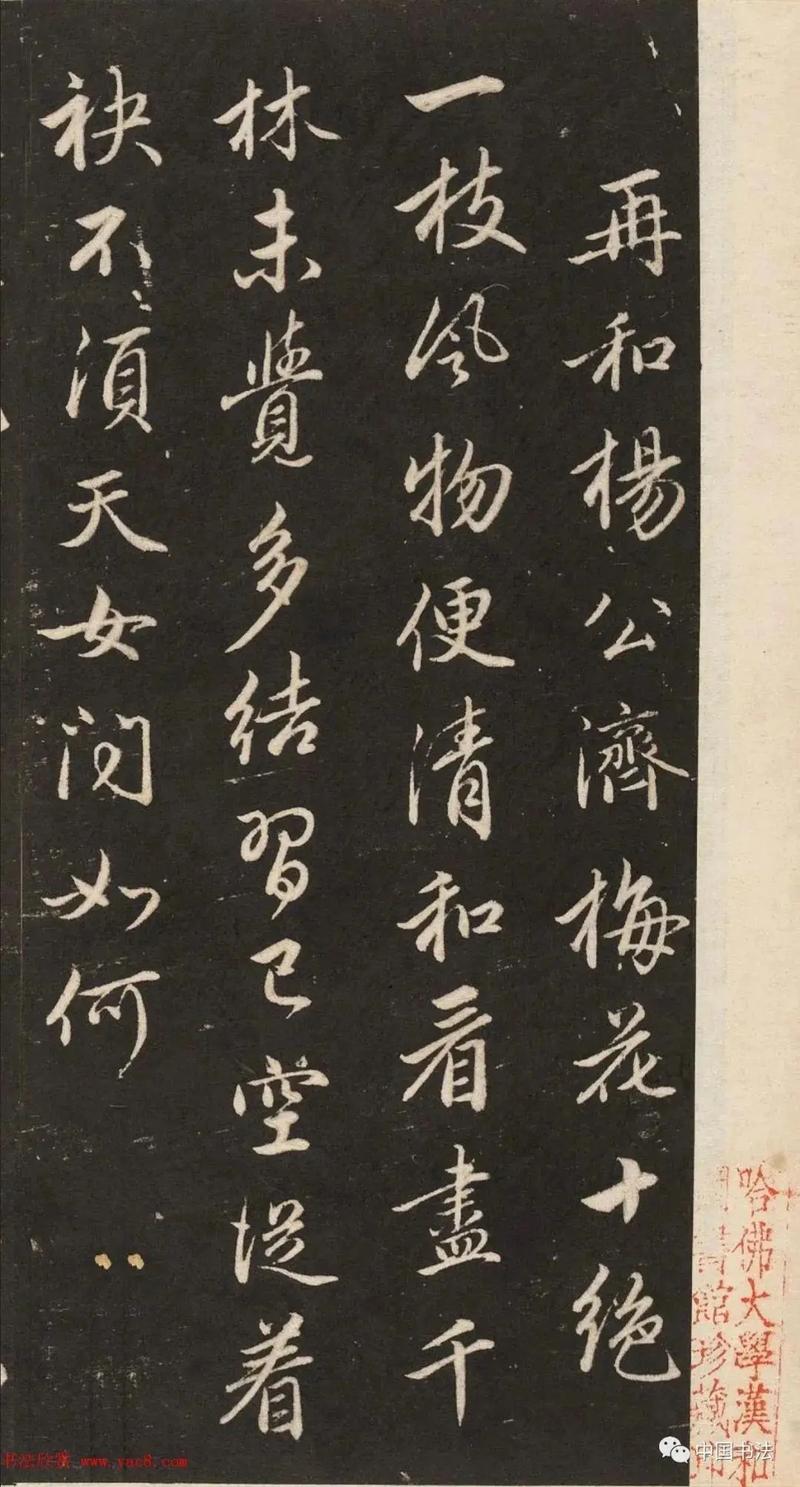 再和楊公濟梅花十絕
一枝風物便清和看盡千
林未覺多結習已空從着
袂不須天女問如何
哈佛大學漢和
圖書館珍藏印
中国书法
书法欣赏 www.yac8.com